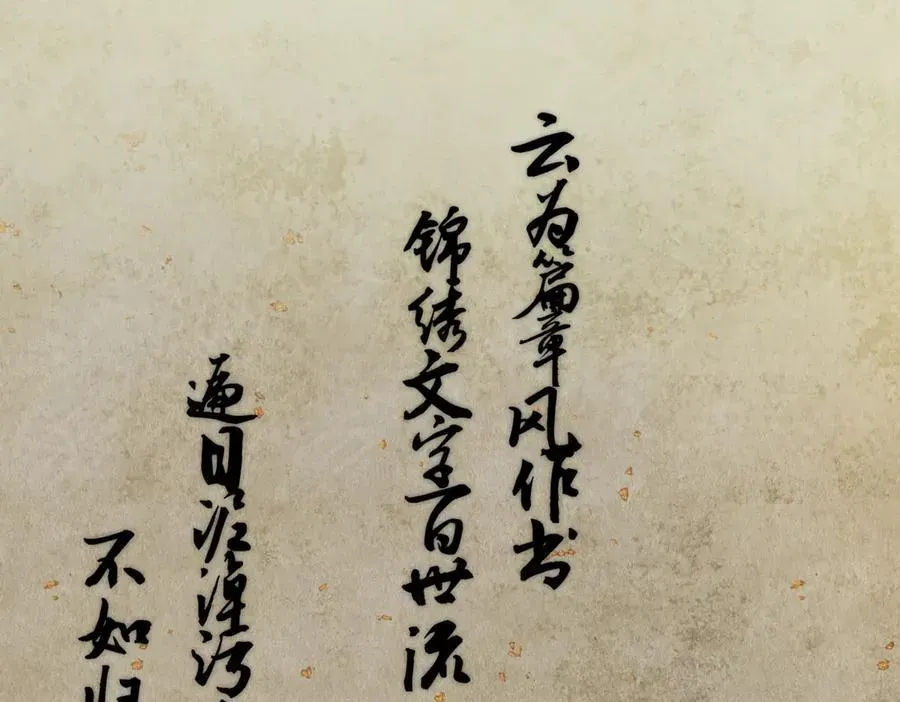 云为篇章风作书
锦绣文字百世流
遍目泥淖污
不如归